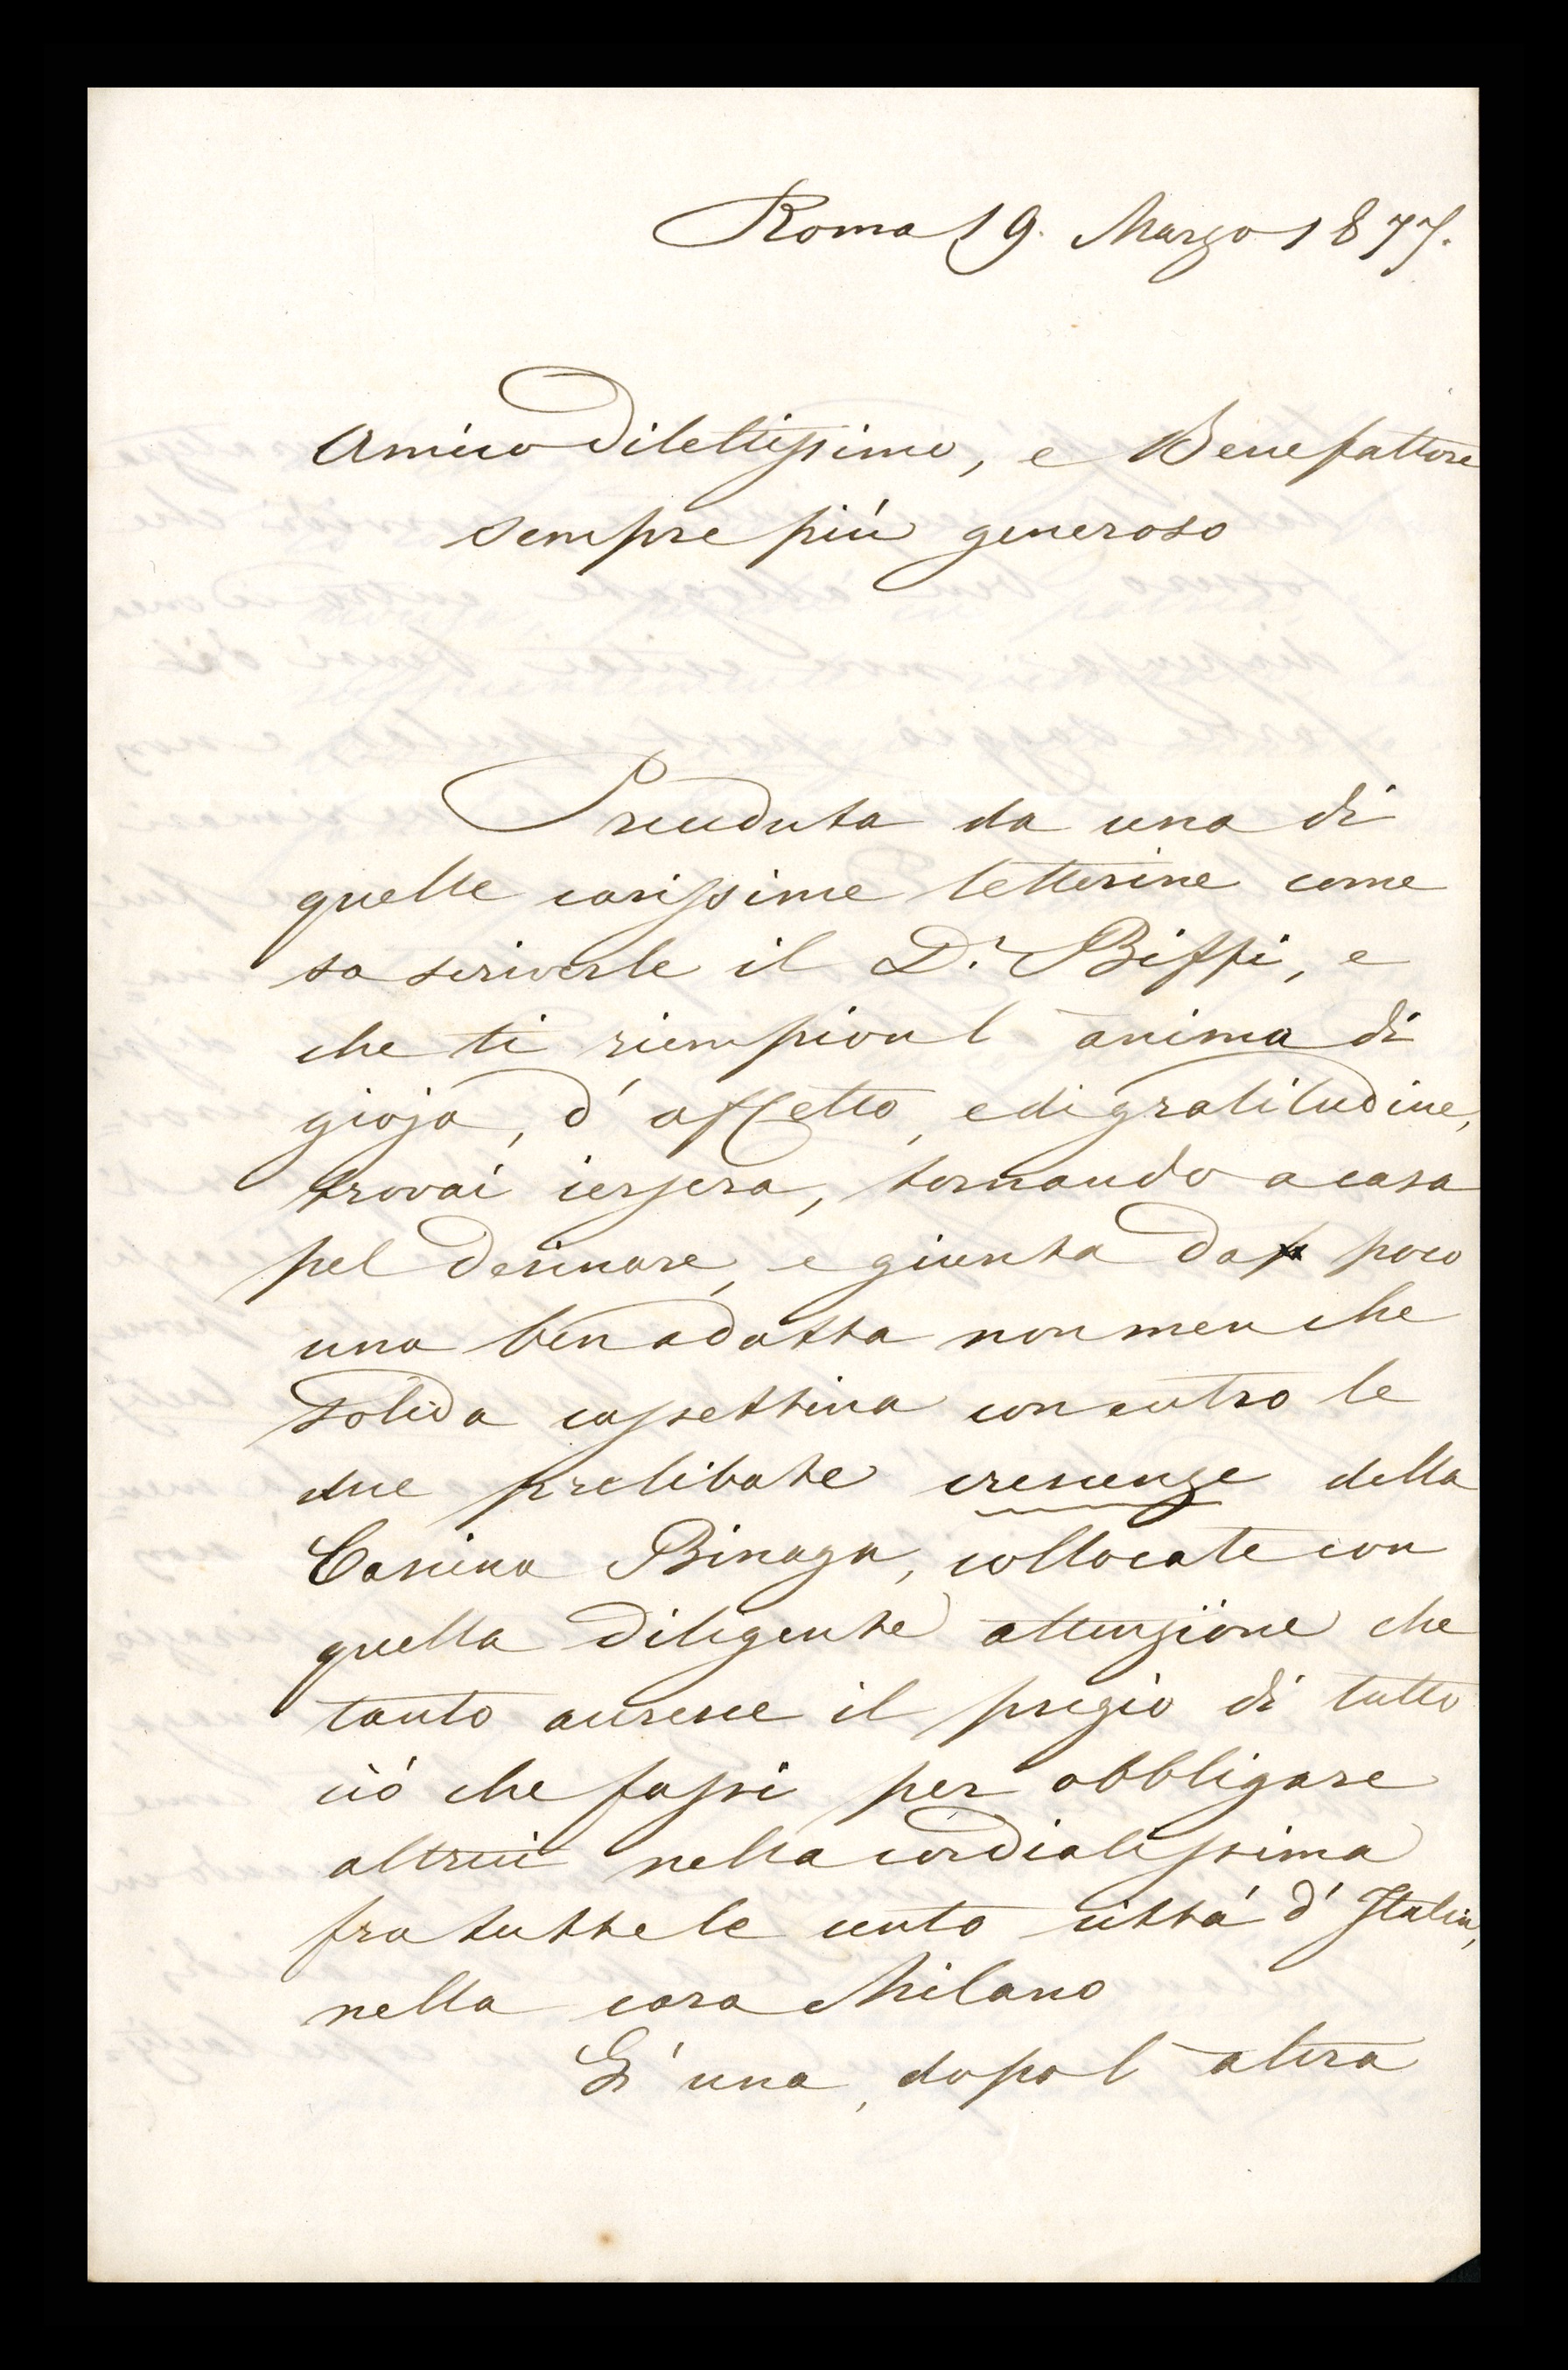 Roma 19. Marzo 1877.
Amico Dilettissimo, e Benefattore
sempre più generoso
Preceduta da una di
quelle carissime letterine come
sa scriverle il D.r Biffi, e
che ti riempion l'anima di
gioja, d'affetto, e di gratitudine,
trovai iersera, tornando a casa
pel desinare, e giunta da poco
una ben adatta non men che
solida cassettina con entro le
due prelibate crescenze della
Casina Binaga, collocate con
quella diligente attenzione che
tanto accresce il pregio di tutto
ciò che fassi per obbligare
altrui nella cordialissima
fra tutte le cento città d'Italia,
nella cara Milano
E' una, dopo l'altra